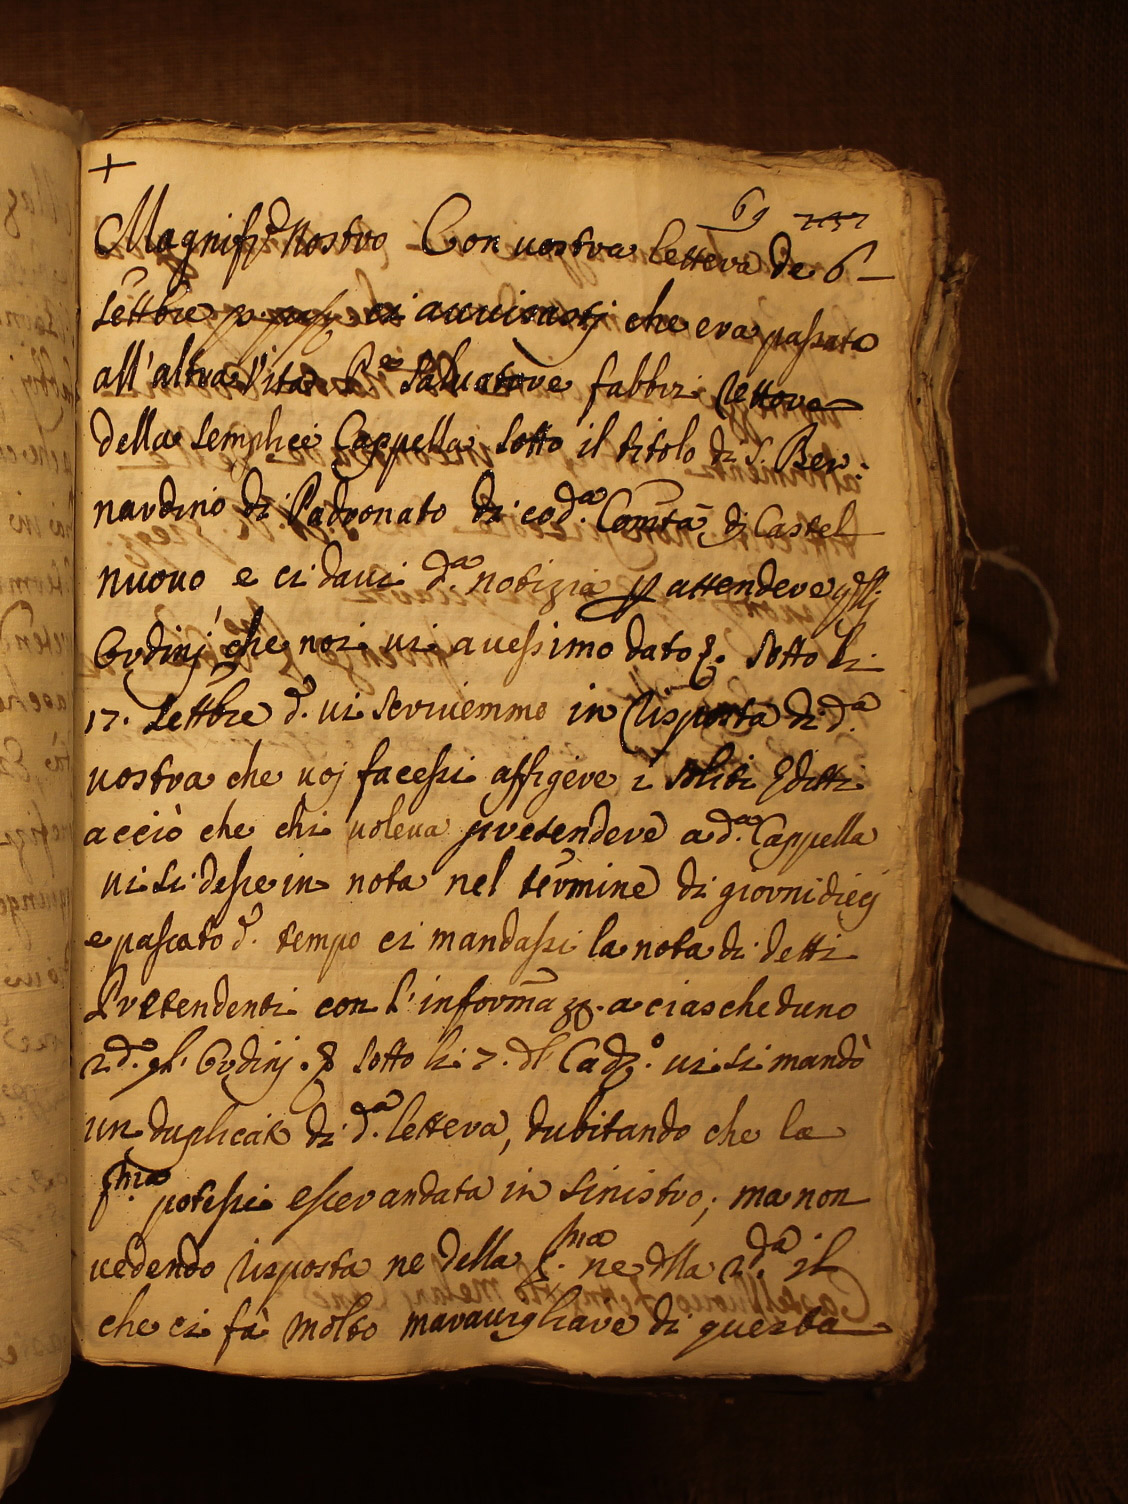 +
69
Magnif.co Nostro Con vostra lettera de 6
Settbre ci avvisasti che era passato
all'altra Vita Salvatore fabbri Rettore
della semplice Cappella sotto il titolo di S. Ber:
nardino di Padronato di cod.a Comtà di Castel
nuovo e ci davi d.a notizia p attendere qlli
Ordinj che noi vi avessimo dato &. sotto li
17. Settbre d.o vi scrivemmo in risposta di d.a
vostra che voj facessi affigere i soliti Editti
acciò che chi voleva pretendere a d.a Cappella
vi si desse in nota nel termine di giorni dieci
e passato d.o tempo ci mandassi la nota di detti
Pretendenti con l'informazz. a ciascheduno
&. sotto li 7. vi si mandò
un duplicato di d.a lettera, dubitando che la
p.ma potessi esser andata in sinistro; ma non
vedendo risposta ne della p.ma ne dlla 2.da il
che ci fà molto maravigliare di questa